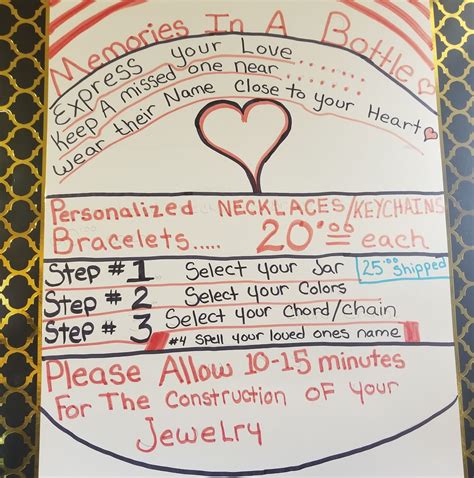 Memories In A Bottle
Express your Love
Keep A missed one near........
wear their Name Close to your Heart
Personalized NECKLACES/KEYCHAINS
Bracelets..... 20.00 each
Step #1 Select your Jar 25.00 shipped
Step #2 Select your Colors
Step #3 Select your Chord/chain
#4 Spell your loved ones name
Please Allow 10-15 minutes
For The Construction OF your
Jewelry